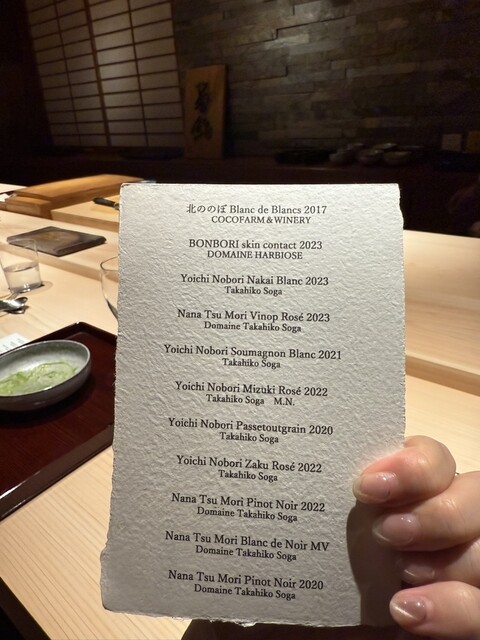 北ののぼ Blanc de Blancs 2017
COCOFARM & WINERY
BONBORI skin contact 2023
DOMAINE HARBIOSE
Yoichi Nobori Nakai Blanc 2023
Takahiko Soga
Nana Tsu Mori Vinop Rosé 2023
Domaine Takahiko Soga
Yoichi Nobori Soumagnon Blanc 2021
Takahiko Soga
Yoichi Nobori Mizuki Rosé 2022
Takahiko Soga M.N.
Yoichi Nobori Passetoutgrain 2020
Takahiko Soga
Yoichi Nobori Zaku Rosé 2022
Takahiko Soga
Nana Tsu Mori Pinot Noir 2022
Domaine Takahiko Soga
Nana Tsu Mori Blanc de Noir MV
Domaine Takahiko Soga
Nana Tsu Mori Pinot Noir 2020
Domaine Takahiko Soga